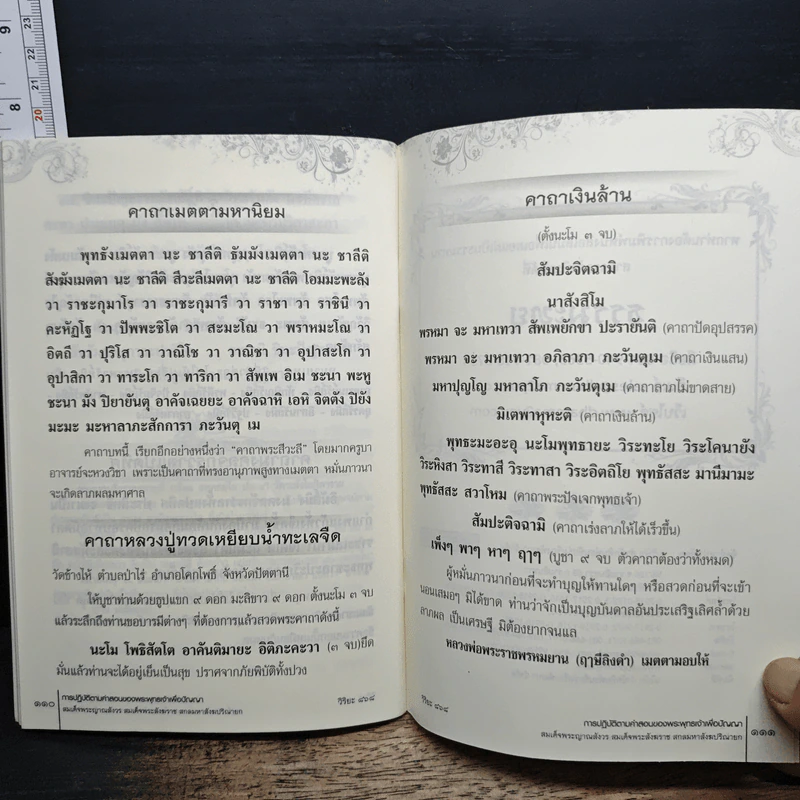 คาถาเมตตามหานิยม
พุทธังเมตตา นะ ชาลีติ ธัมมังเมตตา นะ ชาลีติ
สังฆังเมตตา นะ ชาลีติ สีวะลีเมตตา นะ ชาลีติ โอมมะพะลัง
วา ราชะกุมาโร วา ราชะกุมารี วา ราชา วา ราชินี วา
คะหัฏโฐ วา ปัพพะชิโต วา สะมะโณ วา พราหมะโณ วา
อิตถี วา ปุริโส วา วาณิโช วา วาณิชา วา อุปาสะโก วา
อุปาสิกา วา ทาระโก วา ทาริกา วา สัพเพ อิเม ชะนา พะหู
ชะนา มัง ปิยายันตุ อาคัจเฉยยะ อาคัจฉาหิ เอหิ จิตตัง ปิยัง
มะมะ มะหาลาภะสักการา ภะวันตุ เม
คาถาบทนี้ เรียกอีกอย่างหนึ่งว่า “คาถาพระสีวะลี” โดยมากครูบา
อาจารย์จะหวงวิชา เพราะเป็นคาถาที่ทรงอานุภาพสูงทางเมตตา หมั่นภาวนา
จะเกิดลาภผลมหาศาล
คาถาหลวงปู่ทวดเหยียบน้ำทะเลจืด
วัดช้างให้ ตำบลป่าไร่ อำเภอโคกโพธิ์ จังหวัดปัตตานี
ให้บูชาท่านด้วยธูปแขก ๙ ดอก มะลิขาว ๙ ดอก ตั้งนะโม ๓ จบ
แล้วระลึกถึงท่านขอบารมีต่างๆ ที่ต้องการแล้วสวดพระคาถาดังนี้
นะโม โพธิสัตโต อาคันติมายะ อิติภะคะวา (๓ จบ)ยึด
มั่นแล้วท่านจะได้อยู่เย็นเป็นสุข ปราศจากภัยพิบัติทั้งปวง
๑๑๐
การปฏิบัติตามคำสอนของพระพุทธเจ้าเพื่อปัญญา
สมเด็จพระญาณสังวร สมเด็จพระสังฆราช สกลมหาสังฆปริณายก
วิริยะ ๘๖๘
คาถาเงินล้าน
(ตั้งนะโม ๓ จบ)
สัมปะจิตฉามิ
นาสังสิโม
พรหมา จะ มหาเทวา สัพเพยักขา ปะรายันติ (คาถาปัดอุปสรรค)
พรหมา จะ มหาเทวา อภิลาภา ภะวันตุเม (คาถาเงินแสน)
มหาปุญโญ มหาลาโภ ภะวันตุเม (คาถาลาภไม่ขาดสาย)
มิเตพาหุหะติ (คาถาเงินล้าน)
พุทธะมะอะอุ นะโมพุทธายะ วิระทะโย วิระโคนายัง
วิระหิงสา วิระทาสี วิระทาสา วิระอิตถิโย พุทธัสสะ มานีมามะ
พุทธัสสะ สวาโหม (คาถาพระปัจเจกพุทธเจ้า)
สัมปะติจฉามิ (คาถาเร่งลาภให้ได้เร็วขึ้น)
เพ็งๆ พาๆ หาๆ ฤๅๆ (บูชา ๙ จบ ตัวคาถาต้องว่าทั้งหมด)
ผู้หมั่นภาวนาก่อนที่จะทำบุญให้ทานใดๆ หรือสวดก่อนที่จะเข้า
นอนเสมอๆ มิได้ขาด ท่านว่าจักเป็นบุญบันดาลอันประเสริฐเลิศล้ำด้วย
ลาภผล เป็นเศรษฐี มิต้องยากจนแล
หลวงพ่อพระราชพรหมยาน (ฤๅษีลิงดำ) เมตตามอบให้
วิริยะ ๘๖๘
การปฏิบัติตามคำสอนของพระพุทธเจ้าเพื่อปัญญา
สมเด็จพระญาณสังวร สมเด็จพระสังฆราช สกลมหาสังฆปริณายก
๑๑๑
9
8
23
22
21
20